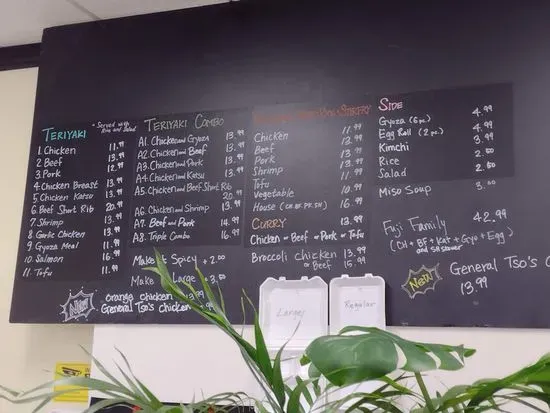 TERIYAKI
* Served with
Rice and Salad
1. Chicken 11.99
2. Beef 13.99
3. Pork 12.99
4. Chicken Breast 13.99
5. Chicken Katsu 13.99
6. Beef Short Rib 20.99
7. Shrimp 13.99
8. Garlic Chicken
9. Gyoza Meal 11.99
10. Salmon 16.99
11. Tofu 11.99
New!
Orange Chicken
General Tso's Chicken
TERIYAKI COMBO
A1. Chicken and Gyoza 13.99
A2. Chicken and Beef 13.99
A3. Chicken and Pork 13.99
A4. Chicken and Katsu 13.99
A5. Chicken and Beef Short Rib
20.99
A6. Chicken and Shrimp 13.99
A7. Beef and Pork 14.99
A8. Triple Combo 16.99
Make it Spicy + 2.00
Make Large
Chicken 11.99
Beef
Pork
Shrimp
Tofu
Vegetable 10.99
House (CH. BF. PK. SH) 16.99
CURRY 13.99
Chicken or Beef or Pork or Tofu
Broccoli Chicken 13.99
or Beef 15.99
SIDE
Gyoza (6 pc.) 4.99
Egg Roll (2 pc.) 4.99
Kimchi 3.99
Rice 2.50
Salad 2.50
Miso Soup
Fuji Family 42.99
(CH + BF + Kat + Gyo + Egg)
New!
General Tso's
13.99
Larger
Regular